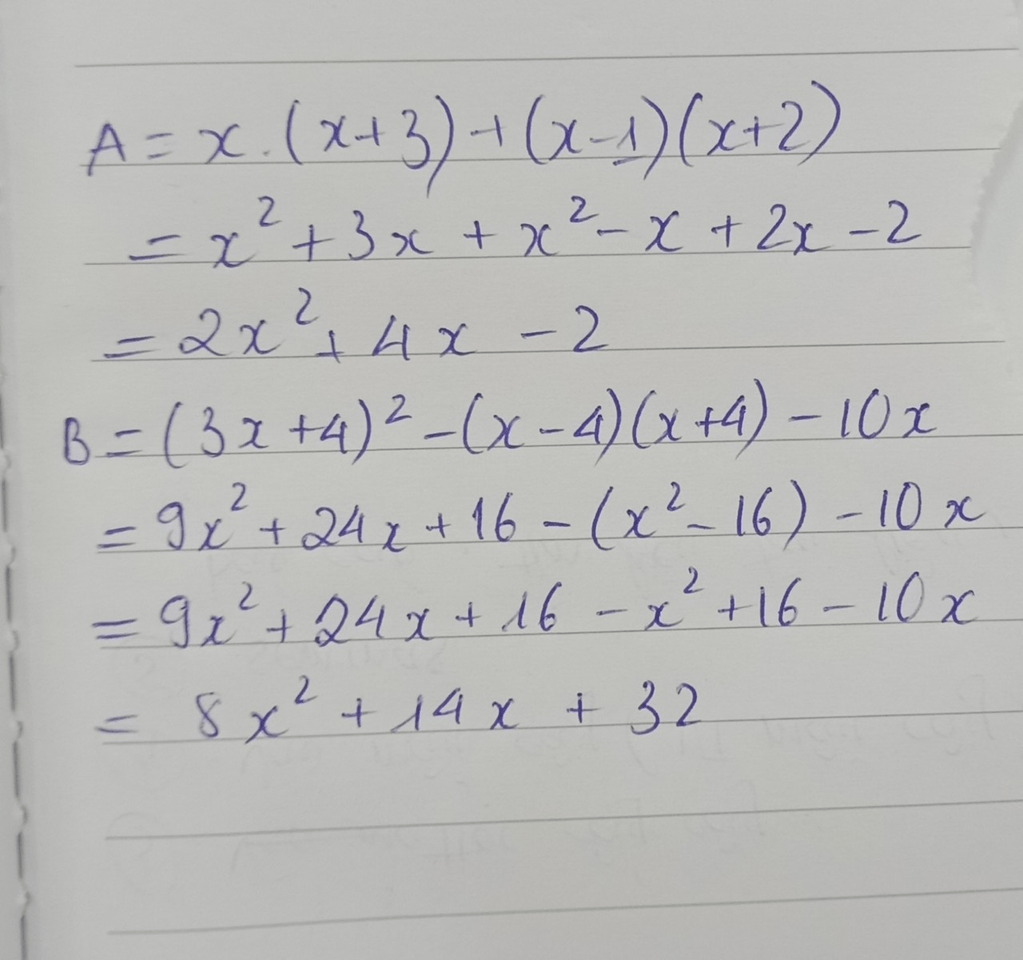 A = x.(x+3)+(x-1)(x+2)
= x² + 3x + x² - x + 2x - 2
= 2x² + 4x - 2
B = (3x+4)² - (x-4)(x+4) - 10x
= 9x² + 24x + 16 - (x² - 16) - 10x
= 9x² + 24x + 16 - x² + 16 - 10x
= 8x² + 14x + 32